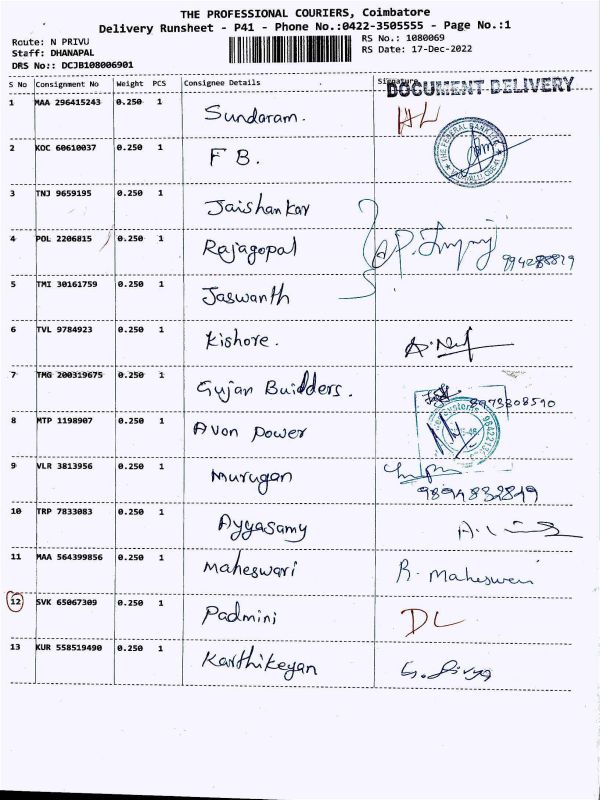 THE PROFESSIONAL COURIERS, Coimbatore
Delivery Runsheet - P41 - Phone No.:0422-3505555 - Page No.:1
Route: N PRIVU
Staff: DHANAPAL
DRS No:: DCJB108006901
RS No.: 1080069
RS Date: 17-Dec-2022
S No Consignment No Weight PCS Consignee Details Signature
DOCUMENT DELIVERY
1 MAA 296415243 0.250 1 Sundaram. HL
2 KOC 60610037 0.250 1 F B.
THE FEDERAL BANK LTD
3 TNJ 9659195 0.250 1 Jaishankar
4 POL 2206815 0.250 1 Rajagopal
5 TMI 30161759 0.250 1 Jaswanth
6 TVL 9784923 0.250 1 Kishore.
7 TMG 200319675 0.250 1 Gujan Buidders. 8973808590
8 MTP 1198907 0.250 1 Avon Power
9 VLR 3813956 0.250 1 Murugan
9894832849
10 TRP 7833083 0.250 1 Ayyasamy
11 MAA 564399856 0.250 1 Maheswari R. Maheswari
12 SVK 65067309 0.250 1 Padmini DL
13 KUR 558519490 0.250 1 Karthikeyan G. Divya